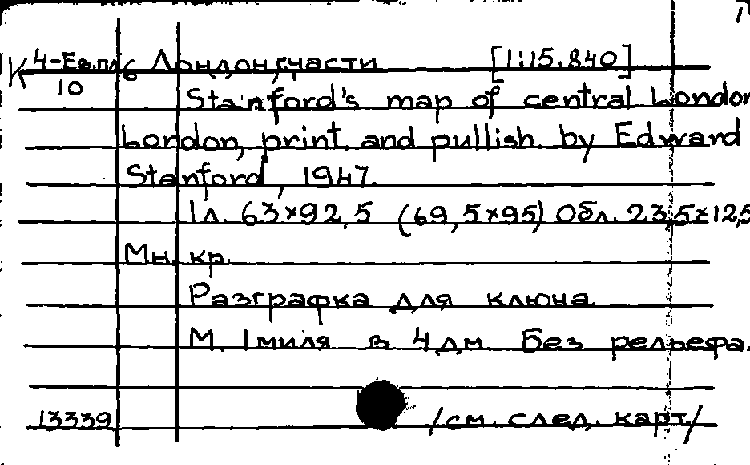 К 4-Ев.пл. 6 Лондон, части [1:15.840]
10
Stanford's map of central London
London, print. and pullish. by Edward
Stanford, 1947.
1 л. 63×92,5 (69,5×95) Обл. 23,5×12,5
Мн. кр.
Разграфка для ключа
М. 1 миля в 4 дм Без рельефа.
13339 /см. след. карт/